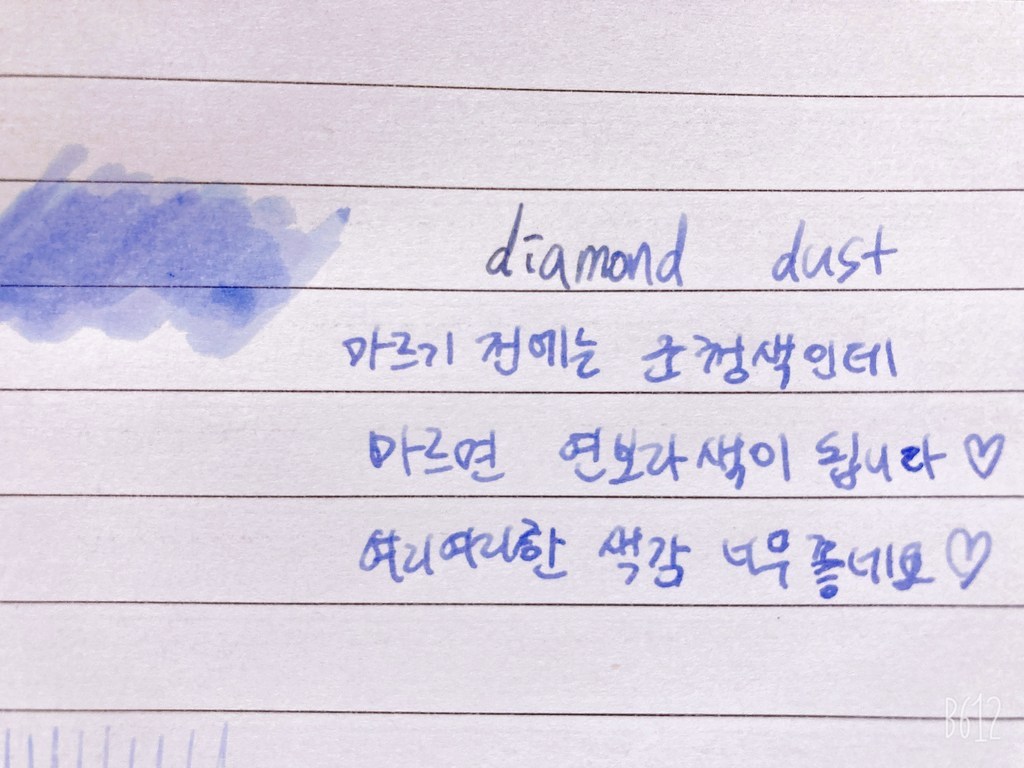 diamond dust
마르기 전에는 군청색인데
마르면 연보라색이 됩니다♡
여리여리한 색감 너무 좋네요♡
B612